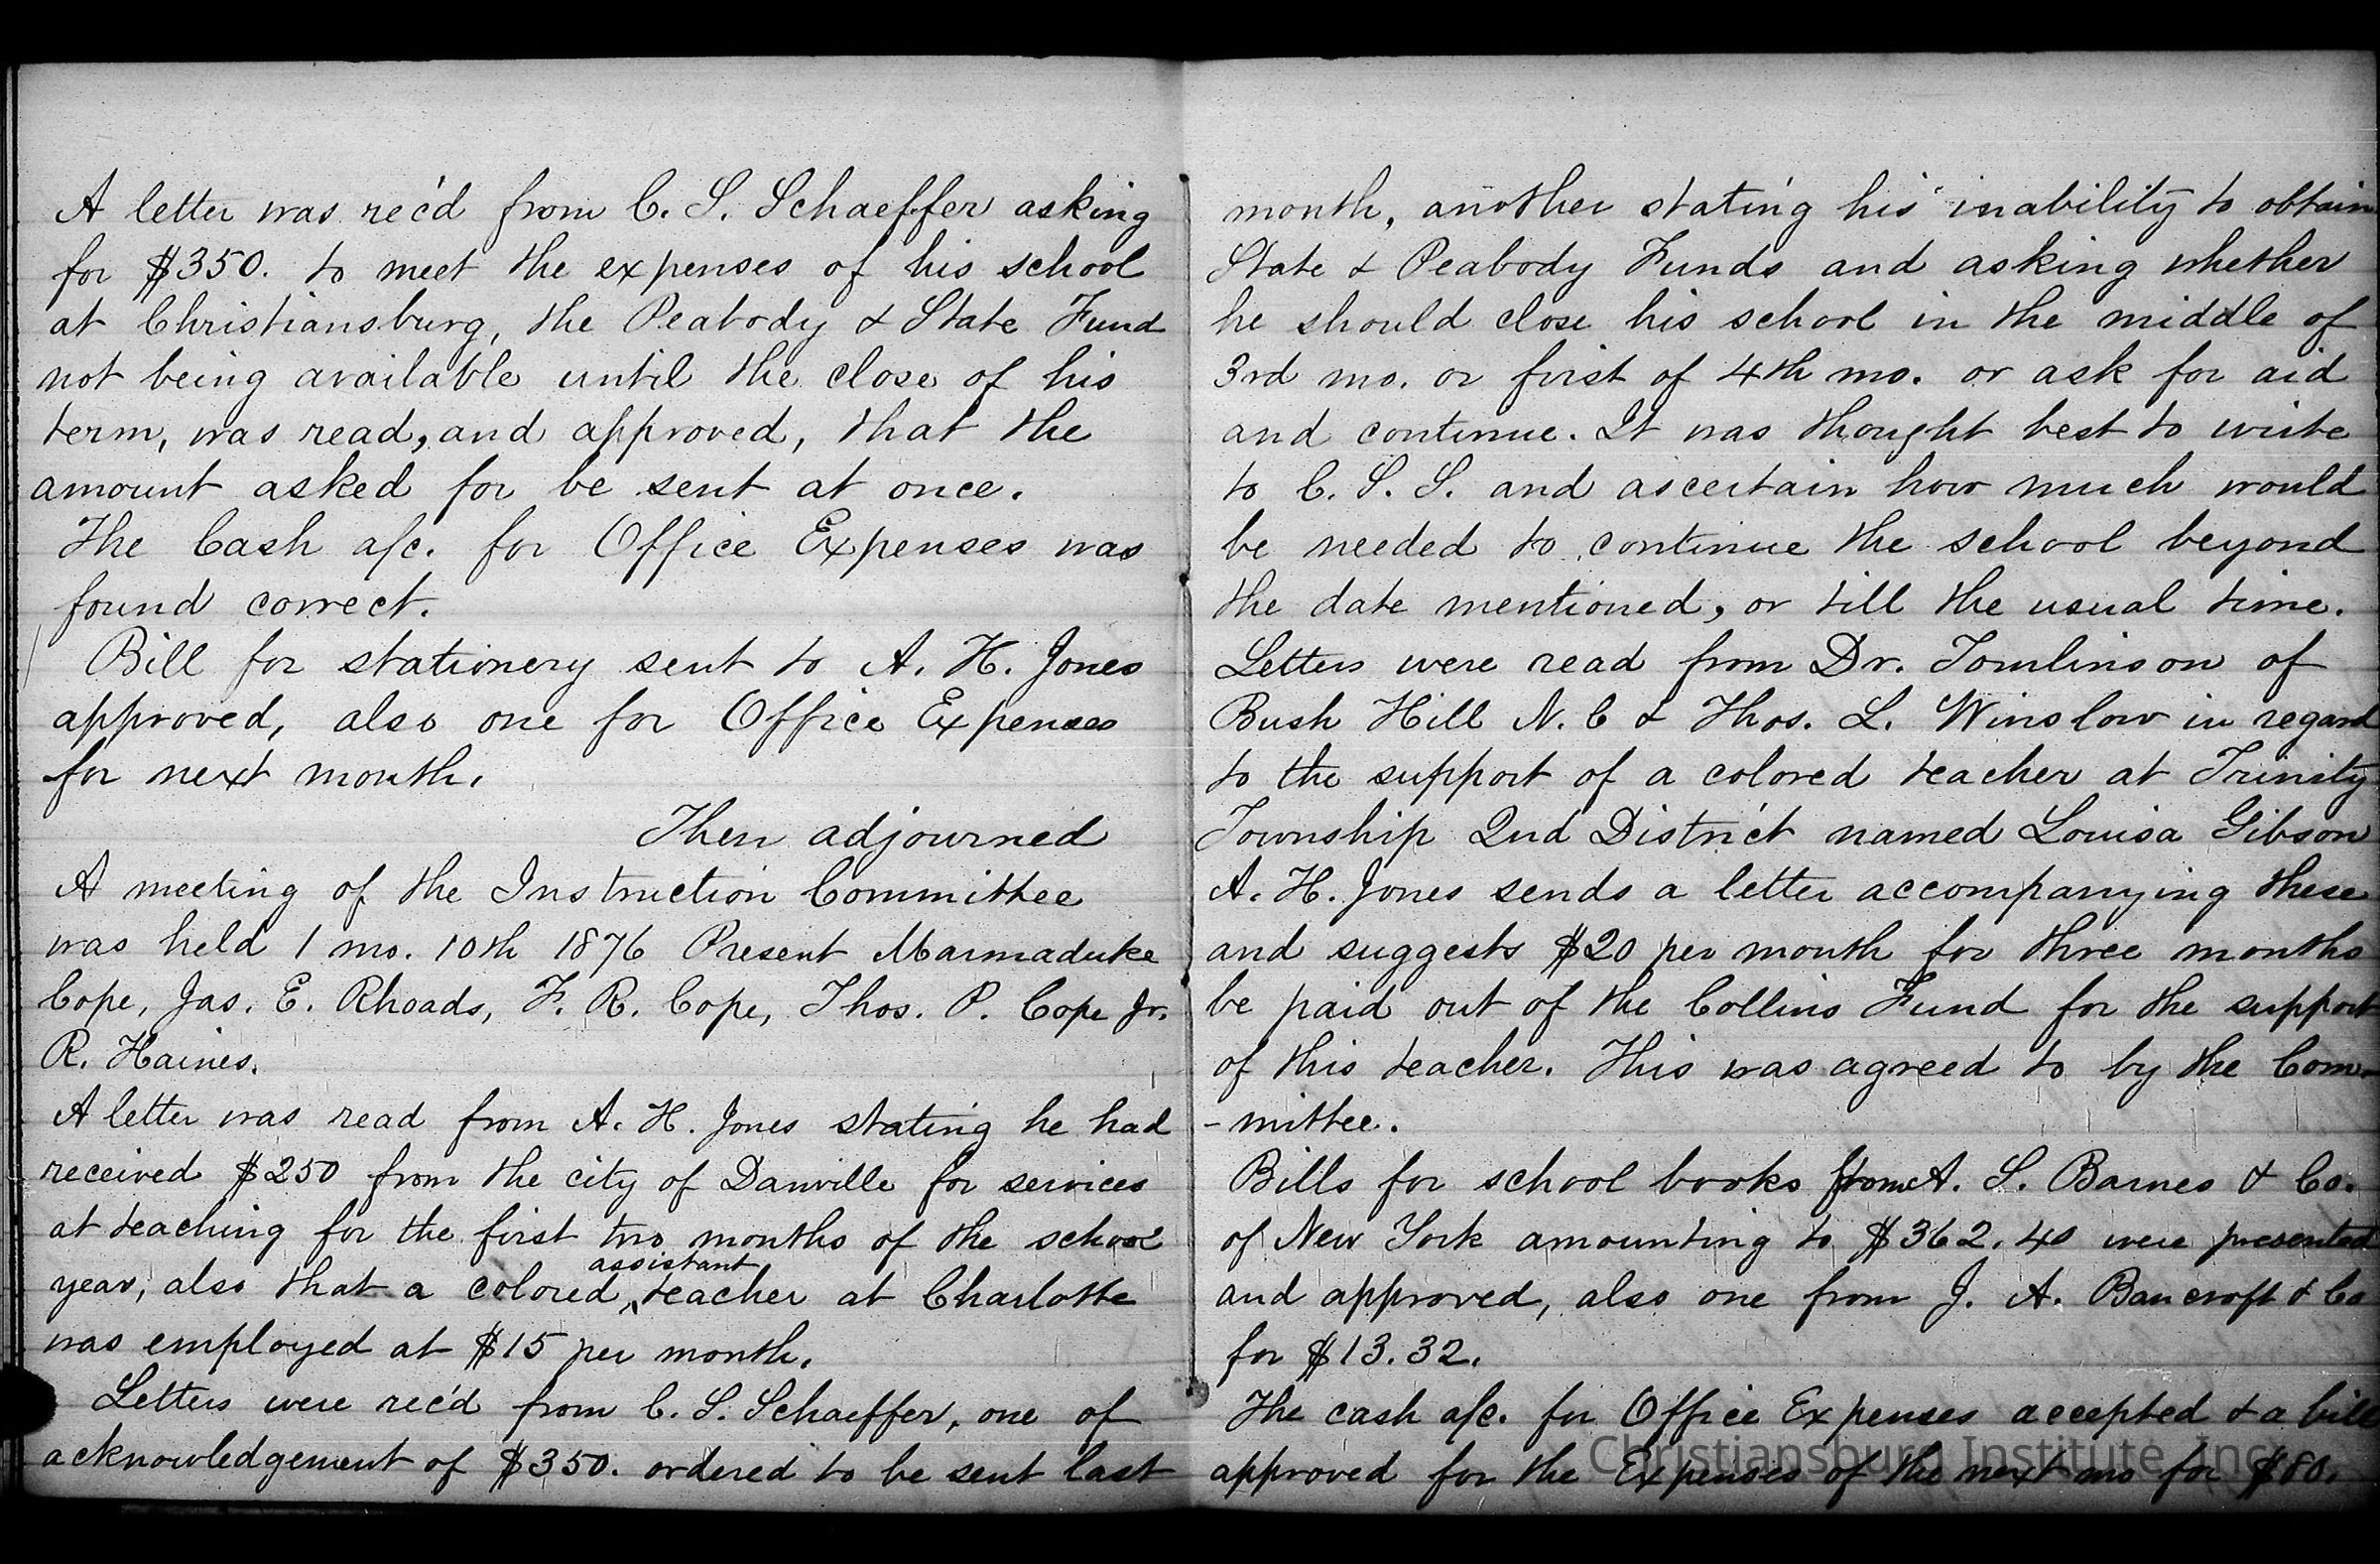 A letter was rec'd from C. S. Schaeffer asking
for $350. to meet the expenses of his school
at Christiansburg, the Peabody & State Fund
not being available until the close of his
term, was read, and approved, that the
amount asked for be sent at once.
The Cash a/c. for Office Expenses was
found correct.
Bill for stationery sent to A. H. Jones
approved, also one for Office Expenses
for next month.
Then adjourned
A meeting of the Instruction Committee
was held 1 mo. 10th 1876 Present Marmaduke
Cope, Jas. E. Rhoads, F. R. Cope, Thos. P. Cope Jr.
R. Haines.
A letter was read from A. H. Jones stating he had
received $250 from the city of Danville for services
at teaching for the first two months of the school
year, also that a colored assistant teacher at Charlotte
was employed at $15 per month.
Letters were rec'd from C. S. Schaeffer, one of
acknowledgement of $350. ordered to be sent last
month, another stating his inability to obtain
State & Peabody Funds and asking whether
he should close his school in the middle of
3rd mo. or first of 4th mo. or ask for aid
and continue. It was thought best to write
to C. S. S. and ascertain how much would
be needed to continue the school beyond
the date mentioned, or till the usual time.
Letters were read from Dr. Tomlinson of
Bush Hill N. C & Thos. L. Winslow in regard
to the support of a colored teacher at Trinity
Township 2nd District named Louisa Gibson
A. H. Jones sends a letter accompanying these
and suggests $20 per month for three months
be paid out of the Collins Fund for the support
of this teacher. This was agreed to by the Com-
-mittee.
Bills for school books from A. S. Barnes & Co.
of New York amounting to $362.40 were presented
and approved, also one from J. A. Bancroft & Co
for $13.32.
The cash a/c. for Office Expenses accepted & a bill
approved for the Expenses of the next mo for $80.
Christiansburg Institute, Inc.